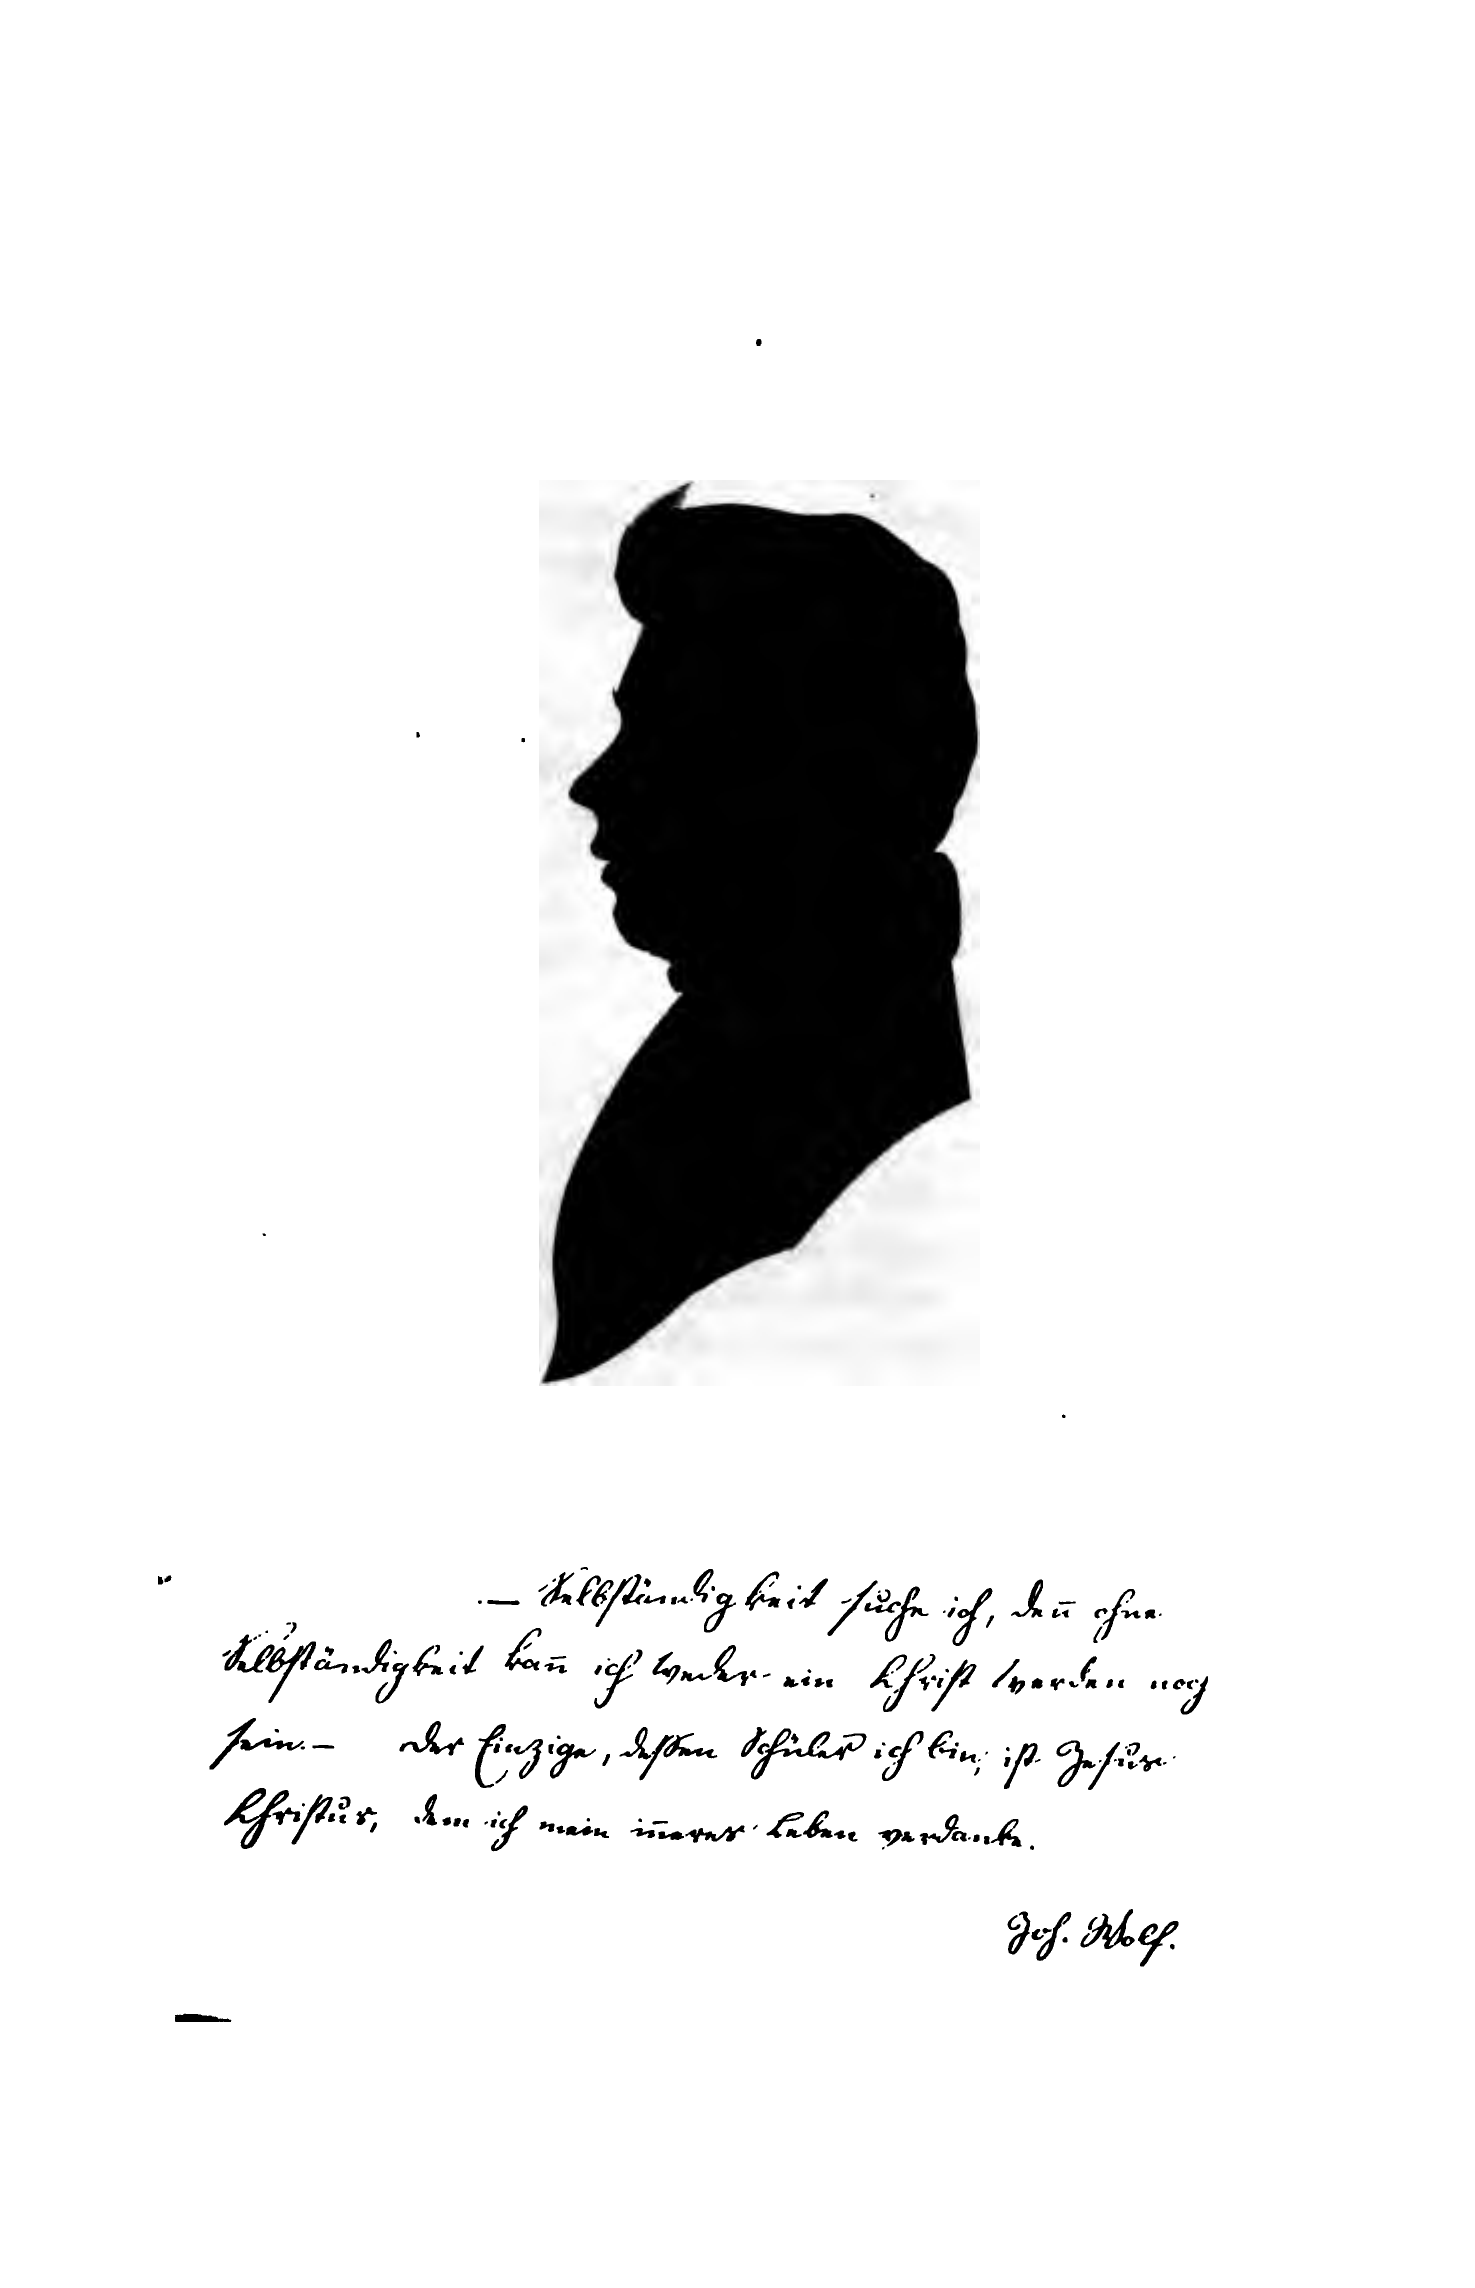 — Selbständigkeit suche ich, den̄ ohne
Selbständigkeit kan̄ ich weder ein Christ werden noch
sein. — Der Einzige, deßen Schüler ich bin, ist Jesus
Christus, dem ich mein in̄eres Leben verdanke.
Joh. Wolf.